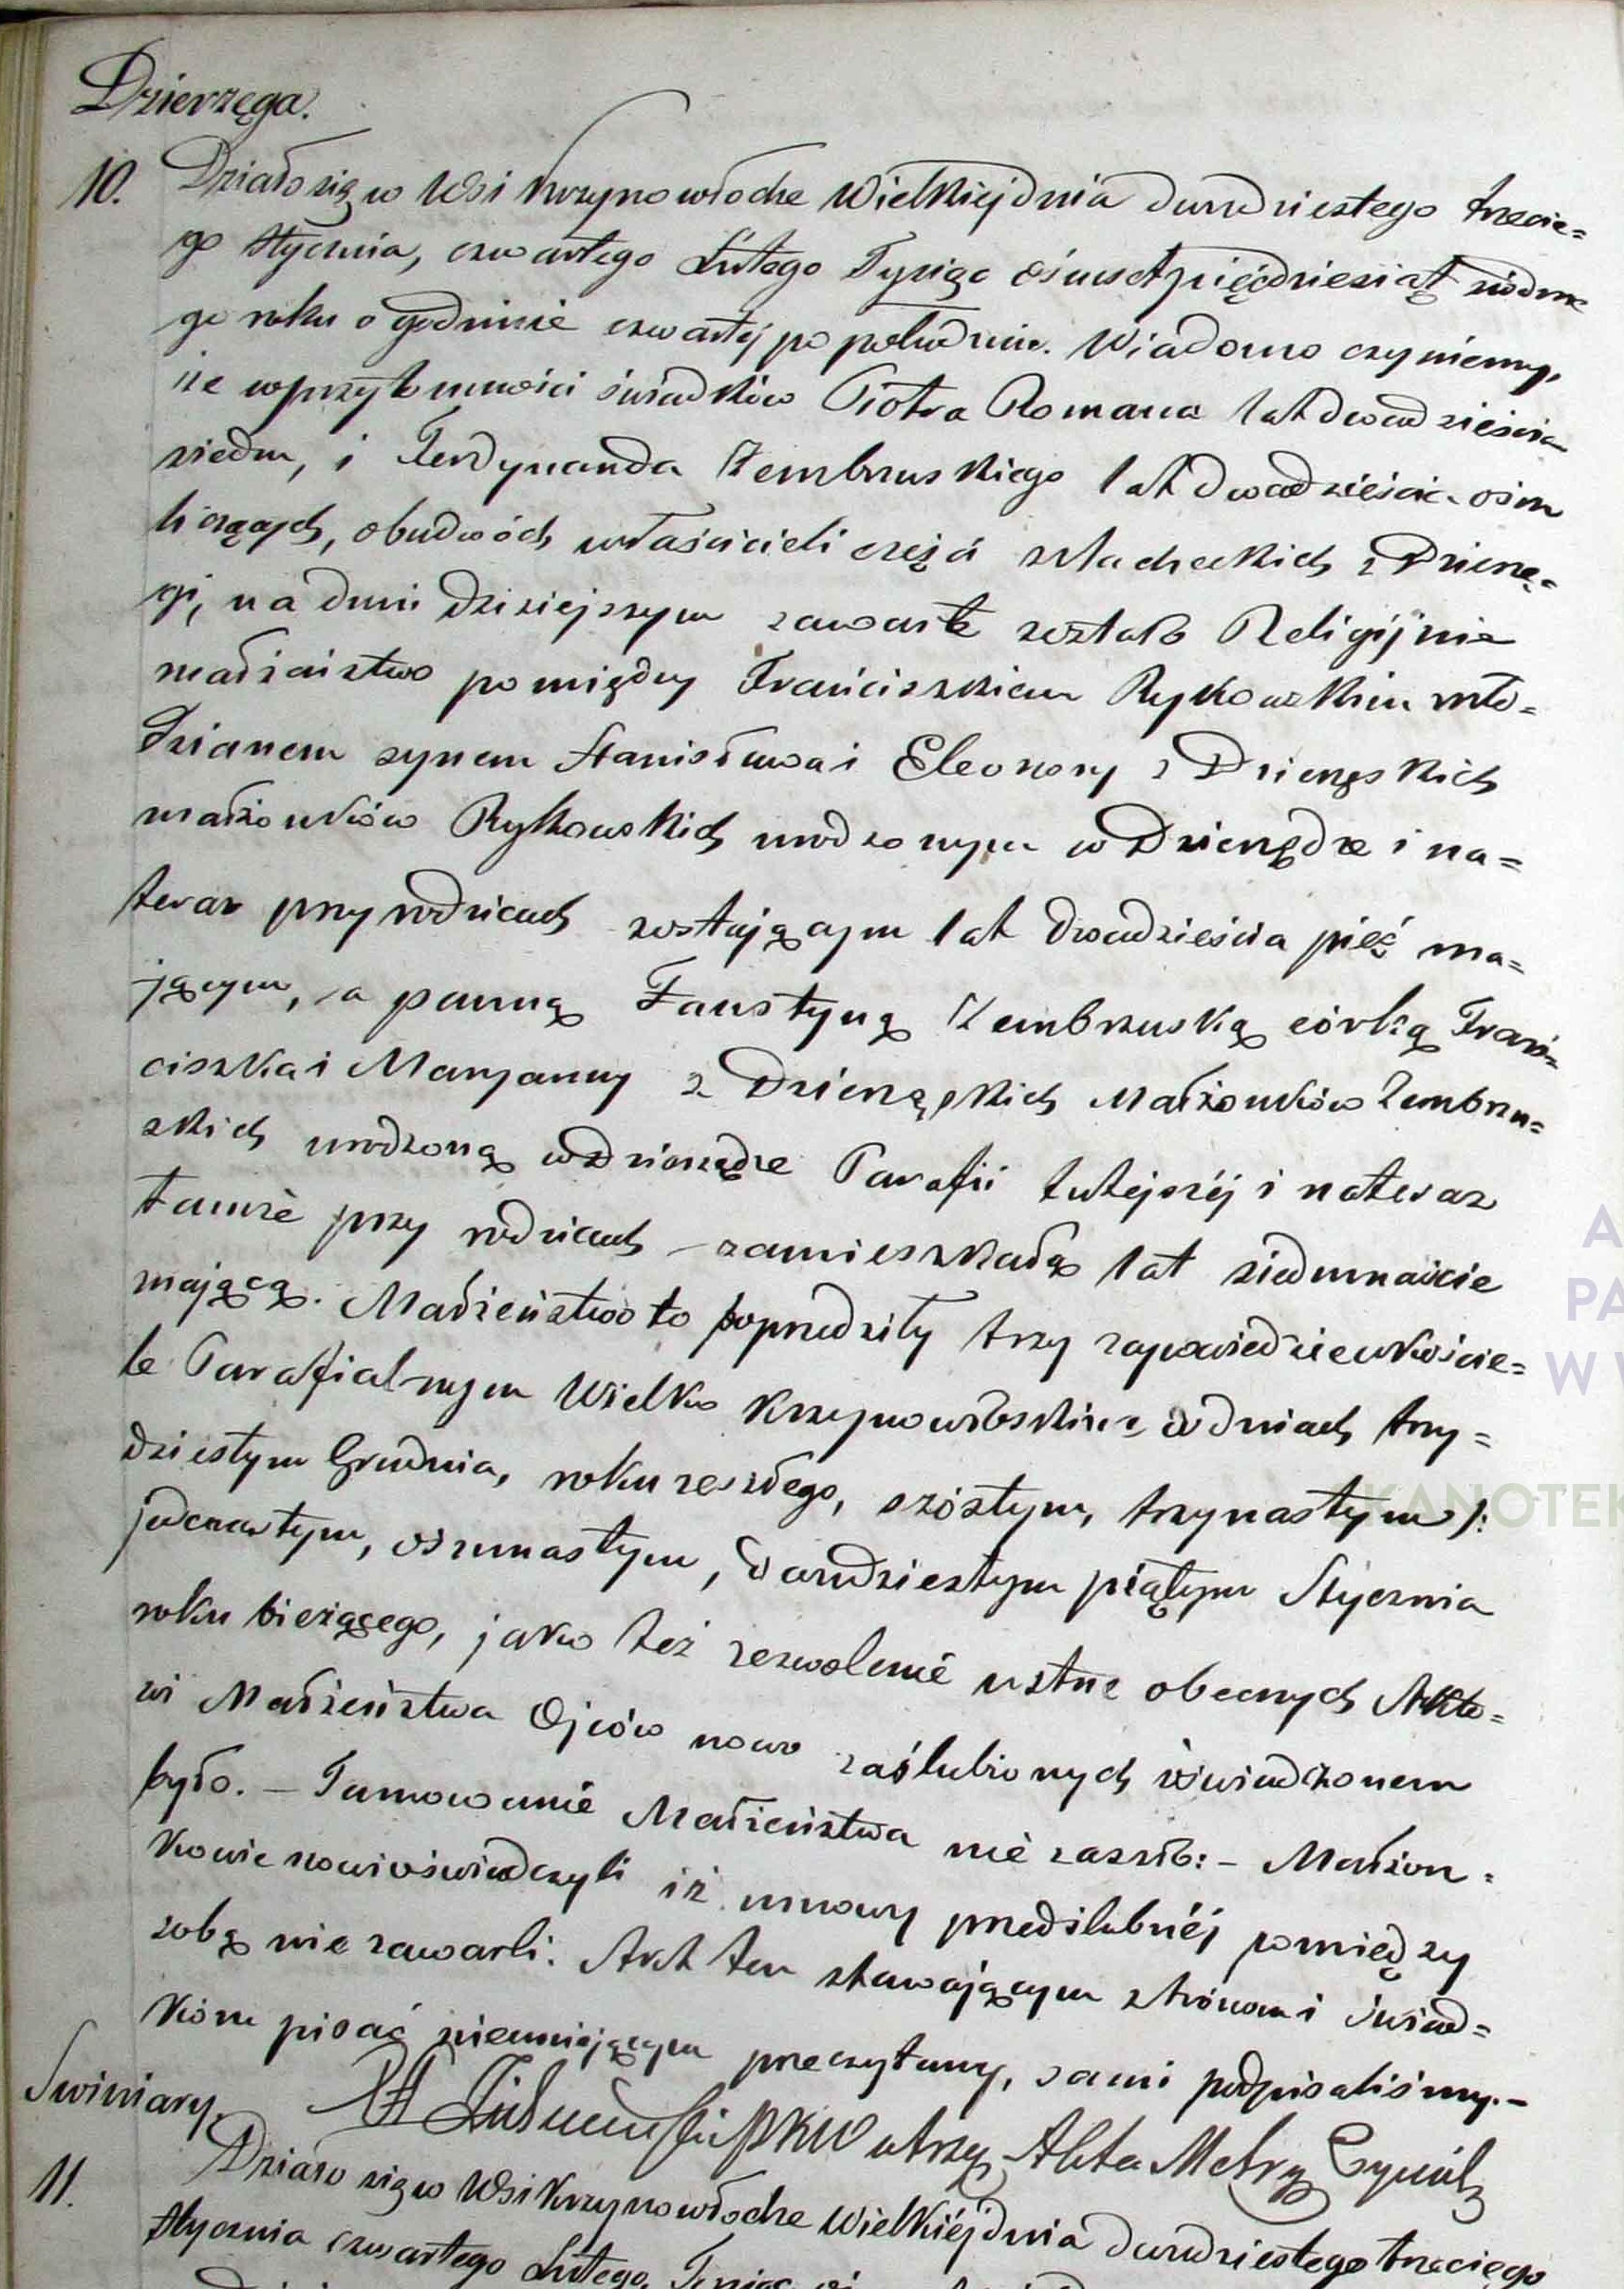 Dzierzęga.
10. Działo się w Wsi Krzynowłodze Wielkiéj dnia dwudziestego trzecie=
go Stycznia, czwartego Lutego Tysiąc ośmset pięćdziesiąt siódme
go roku o godzinie czwartéj po południu. Wiadomo czyniemy,
że w przytomności świadków Piotra Romana lat dwadzieścia
siedm, i Ferdynanda Zembrzuskiego lat dwadzieścia ośm
liczących, obudwóch właścicieli części szlacheckich z Dzierzę=
gi, na dniu dzisiejszym zawarte zostało Religijnie
małżeństwo pomiędzy Franciszkiem Rykowskim mło=
dzianem synem Stanisława i Eleonory z Dzierzęskich
małżonków Rykowskich urodzonym w Dzierzędze i na=
teraz przy rodzicach zostającym lat dwadzieścia pięć ma=
jącym, a panną Faustyną Zembrzuską córką Fran=
ciszka i Maryanny z Dzierzęskich Małżonków Zembrzu=
skich urodzoną w Dzierzędze Parafii tutejszéj i nateraz
tamże przy rodzicach zamieszkałą lat siedmnaście
mającą. Małżeństwo to poprzedziły trzy zapowiedzie w koście=
le Parafialnym Wielko Krzynowłoskim w dniach trzy=
dziestym Grudnia, roku zeszłego, szóstym, trzynastym /:
jedenastym, ośmnastym, dwudziestym piątym Stycznia
roku bieżącego, jako też zezwolenie ustne obecnych Akto=
wi Małżeństwa Ojców nowo zaślubionych oświadczonem
było. – Tamowanie Małżeństwa nie zaszło: – Małżon=
kowie nowi oświadczyli iż umowy przedślubnéj pomiędzy
sobą nie zawarli. Akt ten stawającym stronom i świad=
kom pisać nieumiejącym przeczytany, sami podpisaliśmy. –
PKW utrzy. Akta Metry Cywil
Swiniary.
11. Działo się w Wsi Krzynowłodze Wielkiéj dnia dwudziestego trzeciego
Stycznia czwartego Lutego, Tysiąc